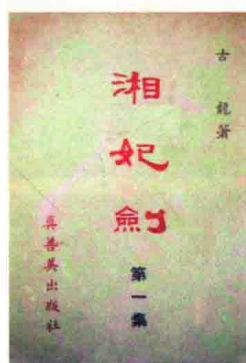 古龍著
湘妃劍
第一集
真善美出版社